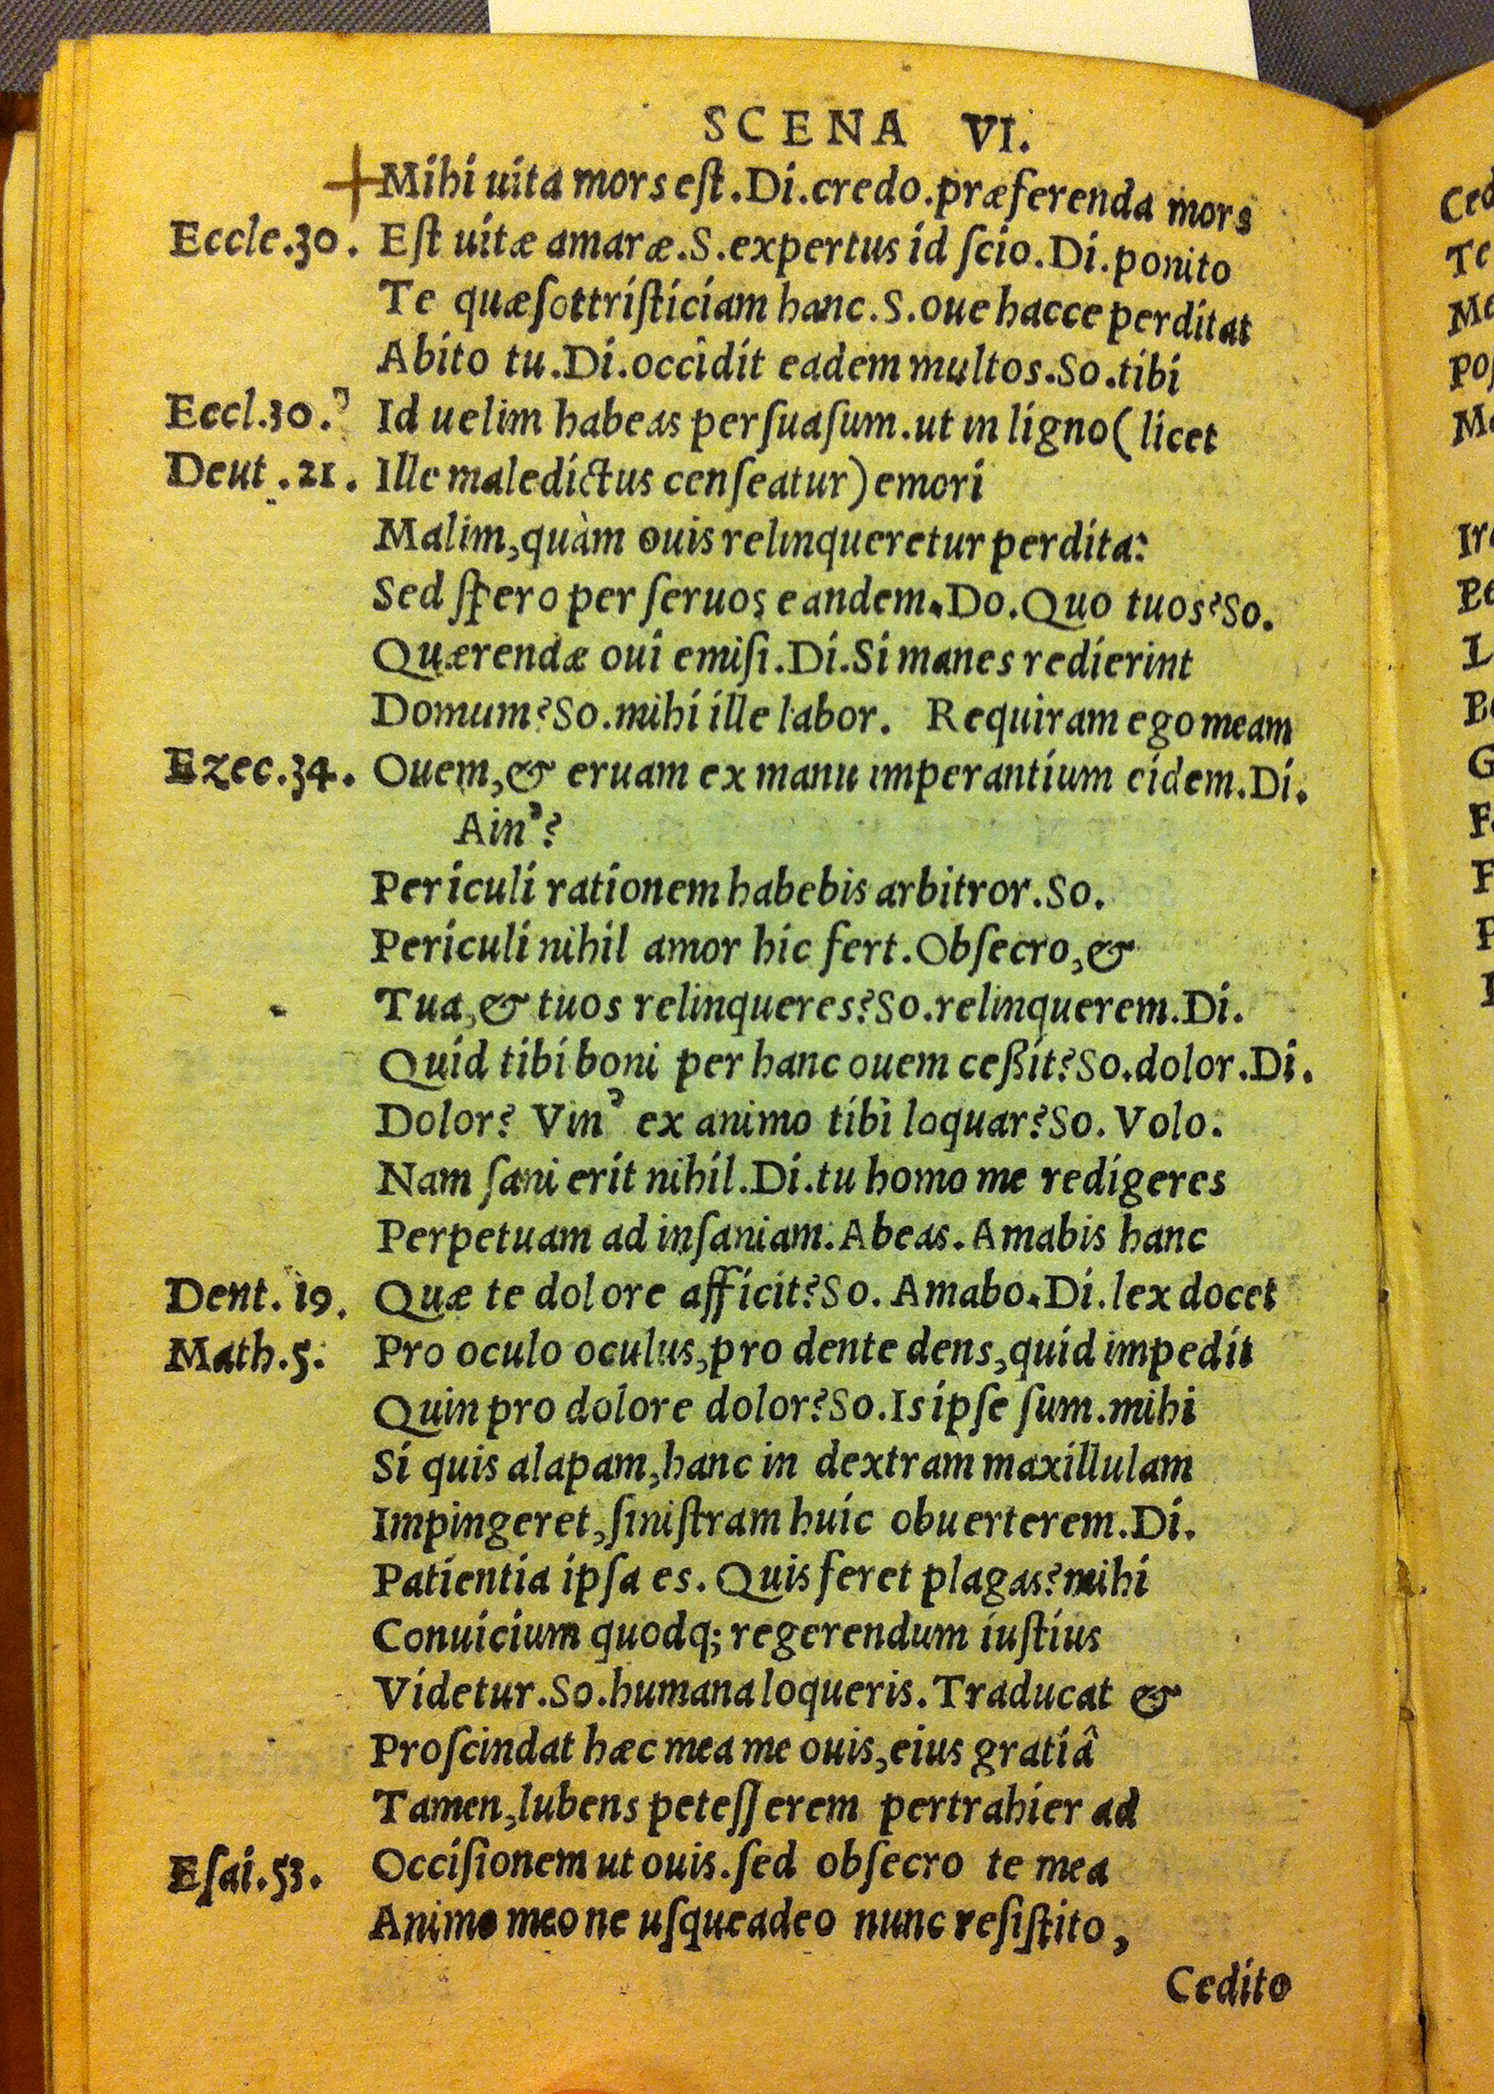 SCENA VI.
Mihi uita mors eſt.Di.credo.præferenda mors
Eccle.30. Eſt uitæ amaræ.S.expertus id ſcio.Di.ponito
Te quæſottriſticiam hanc.S.oue hacce perditat
Abito tu.Di.occidit eadem multos.So.tibi
Eccl.30. Id uelim habeas perſuaſum.ut in ligno(licet
Deut.21. Ille maledictus cenſeatur)emori
Malim,quàm ouis relinqueretur perdita:
Sed ſpero per ſeruos eandem.Do.Quo tuos?So.
Quærendæ oui emiſi.Di.Si manes redierint
Domum?So.mihi ille labor. Requiram ego meam
Ezec.34. Ouem,& eruam ex manu imperantium eidem.Di.
Ain'?
Periculi rationem habebis arbitror.So.
Periculi nihil amor hic fert.Obſecro,&
Tua,& tuos relinqueres?So.relinquerem.Di.
Quid tibi boni per hanc ouem ceßit?So.dolor.Di.
Dolor? Vin' ex animo tibi loquar?So.Volo.
Nam ſani erit nihil.Di.tu homo me redigeres
Perpetuam ad inſaniam.Abeas.Amabis hanc
Dent.19. Quæ te dolore afficit?So. Amabo.Di.lex docet
Math.5. Pro oculo oculus,pro dente dens,quid impedit
Quin pro dolore dolor?So.Is ipſe ſum.mihi
Si quis alapam,hanc in dextram maxillulam
Impingeret,ſiniſtram huic obuerterem.Di.
Patientia ipſa es. Quis feret plagas?mihi
Conuicium quodq; regerendum iuſtius
Videtur.So.humana loqueris.Traducat &
Proſcindat hæc mea me ouis,eius gratiâ
Tamen,lubens peteſſerem pertrahier ad
Eſai.53. Occiſionem ut ouis.ſed obſecro te mea
Animo meo ne uſqueadeo nunc reſiſtito,
Cedito